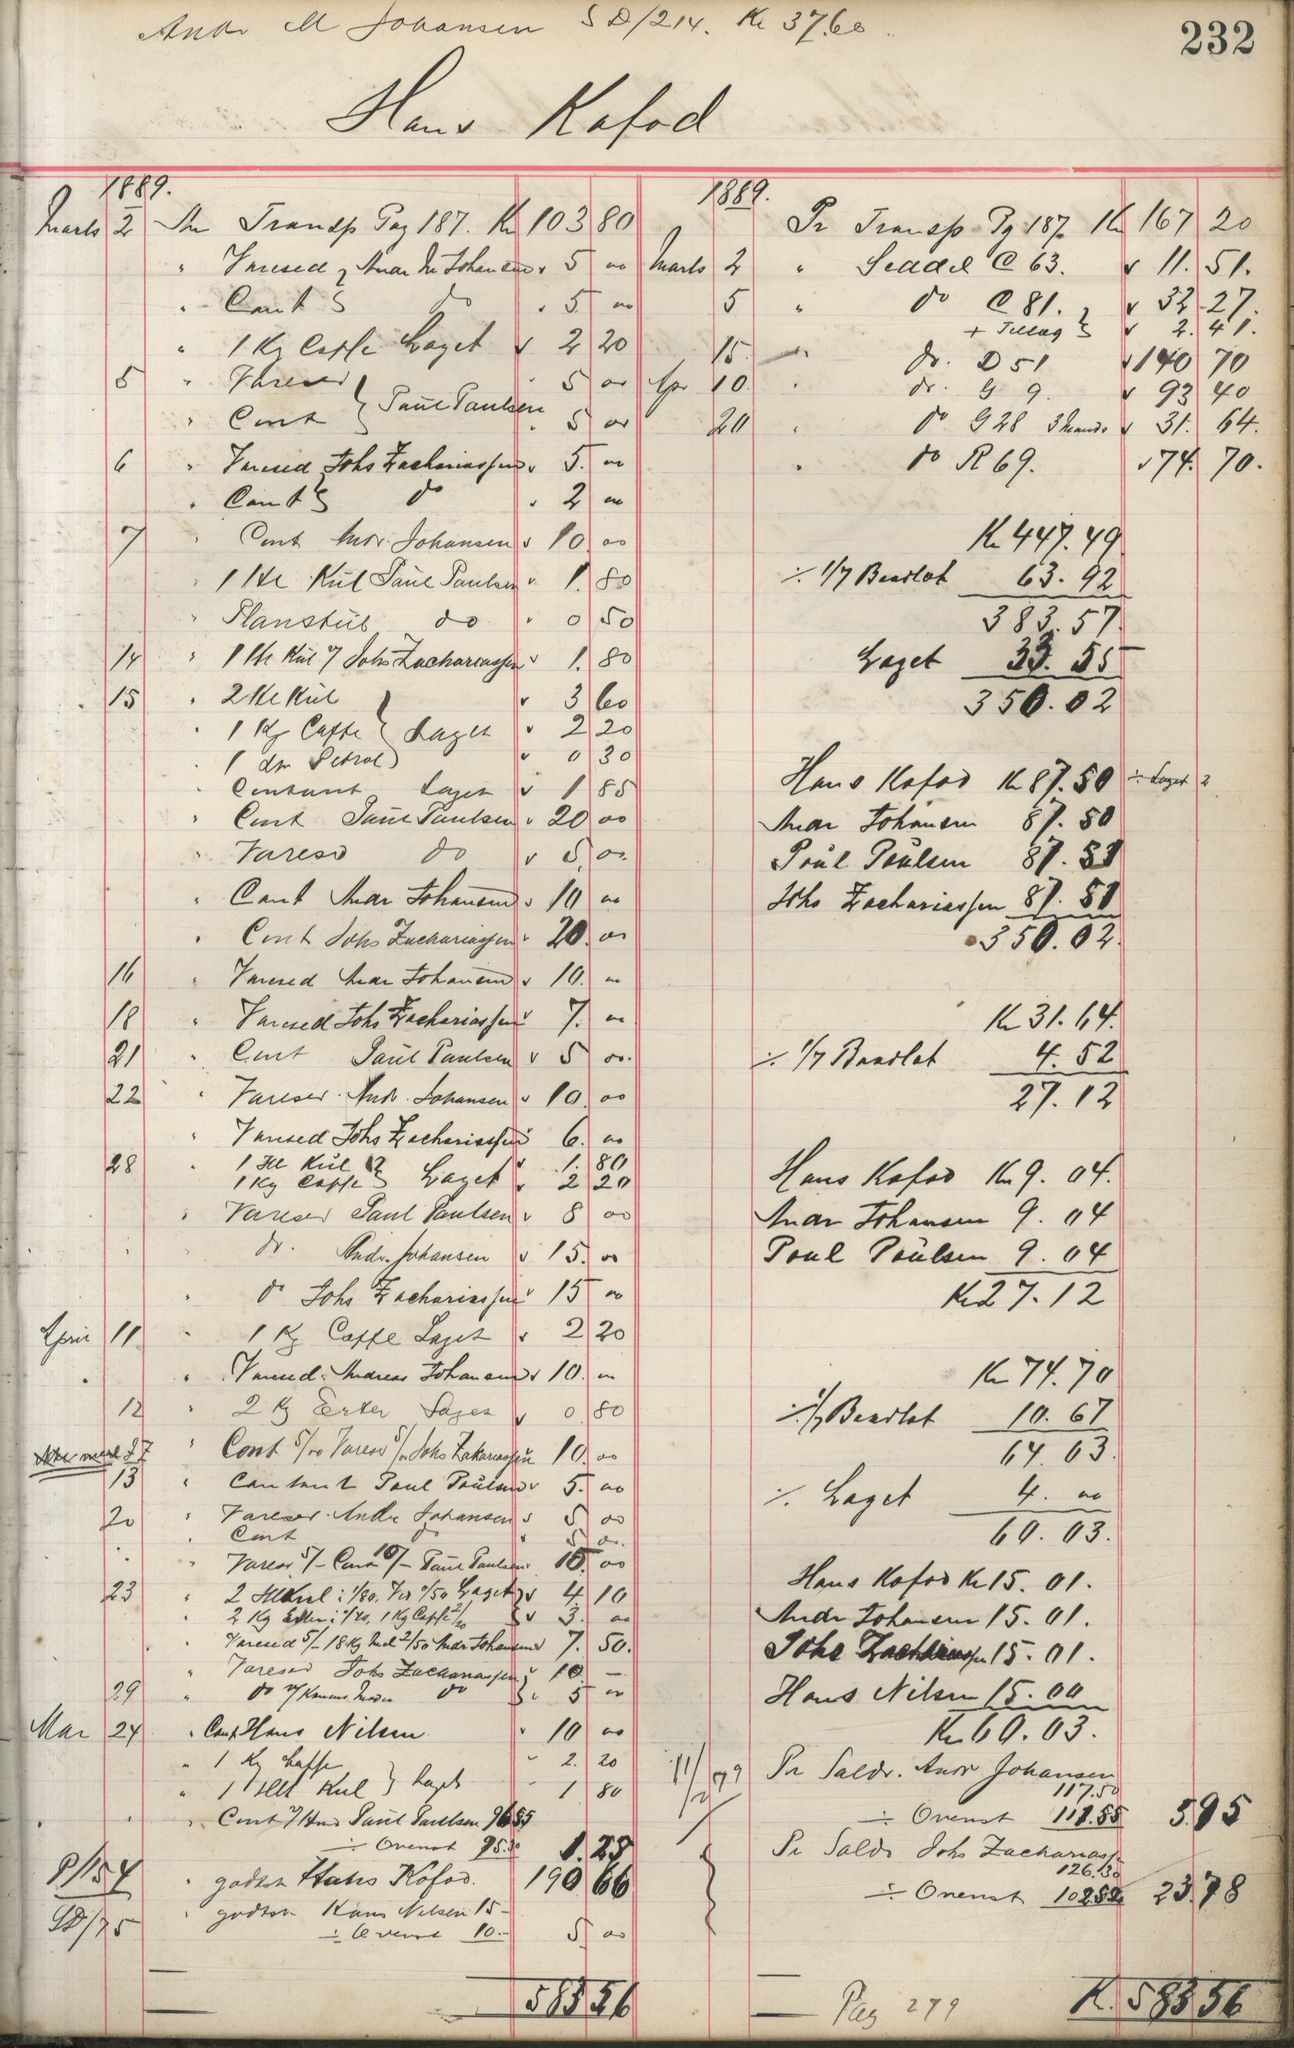 Andr M Johansen S D/214. Kr 37.60
232
Hans Kofod
1889.
Marts 2 An Transp Pag 187. Kr 103 80
" Varesed Andr M Johansen " 5 00
" Cont do " 5 00
" 1 Kg Caffe Laget " 2 20
5 " Varesed " 5 00
" Cont } Paul Paulsen " 5 00
6 " Varesed Johs Zachariassen " 5 00
" Cont do " 2 00
7 " Cont Andr. Johansen " 10 00
" 1 Hl Kul Paul Paulsen " 1 80
" do " 0 50
14 " 1 Hl Kul Johs Zachariassen " 1. 80
15 " 2 Hl Kul " 3 60
" 1 Kg Caffe } Laget " 2 20
" 1 Petrol " 0 30
" Contant Laget " 1 85
" Cont Paul Paulsen " 20 00
" Varesed do " 5 00
" Cont Andr Johansen " 10 00
" Cont Johs Zachariassen " 20 00
16 " Varesed Andr Johansen " 10 00
18 " Varesed Johs Zachariassen " 7. 00
21 " Cont Paul Paulsen " 5 00
22 " Varesed. Andr. Johansen " 10 00
" Varesed Johs Zachariassen " 6. 00
28 " 1 Hl Kul " 1. 80
1 Kg Caffe } Laget " 2 20
" Varesed Paul Paulsen " 8 00
do. Andr. Johansen " 15. 00
" do Johs Zachariassen " 15 00
April 11 " 1 Kg Caffe Laget " 2 20
" Varesed. Andreas Johansen " 10. 00
12 " 2 Kg Erter Laget " 0 80
" Cont 5/00 Varesed 5/00 Johs Zakariassen 10 00
13 " Contant Paul Paulsen " 5. 00
20 " Varesed. Andr Johansen " 5 00
" Cont do " 5 00
" Varesed 5/- Cont 10/- Paul Paulsen " 15. 00
23 " 2 Hl Kul : 1/80. 0/50 Laget " 4 10
" 2 Kg Erter : 1 Kg Caffe 2/20 " 3. 00
" Varesed 5/- 18 Kg Mel 2/50 Andr Johansen 7. 50.
" Varesed Johs Zachariassen " 10 —
29 " do do " 5 00
Mai 24 " Cont Hans Nilsen " 10 00
" 1 Kg Caffe " 2. 20
" 1 Hl Kul } Laget " 1 80
" Cont Paul Paulsen
÷ Ovenst 1. 25
P/154 " godtsk Hans Kofod. 190 66
SD/75 " godtsk Hans Nilsen 15 -
÷ Ovenst 10.- 5 00
583 56
1889.
Pr Transp Pg 187 Kr 167 20
Marts 2 " Seddel C 63. " 11. 51.
5 " do C 81. " 32 27.
+ Tillæg " 2. 41.
15. " do. D 51 " 140 70
Apr 10. " do. G 9. " 93 40
20 " do G 28 3 Mands " 31. 64.
" do R 69. " 74. 70.
Kr 447.49
÷ 1/7 Baadlot 63.92
383.57
Laget 33.55
350.02
Hans Kofod Kr 87.50 ÷ Laget 2
Andr Johansen 87.50
Poul Poulsen 87.51
Johs Zachariassen 87.51
350.02.
Kr 31.64.
÷ 1/7 Baadlot 4.52
27.12
Hans Kofod Kr 9.04.
Andr Johansen 9.04
Poul Poulsen 9.04
Kr 27.12
Kr 74.70
÷ 1/7 Baadlot 10.67
64.03.
÷ Laget 4.00
60.03.
Hans Kofod Kr 15.01.
Andr Johansen 15.01.
Johs Zachariassen 15.01.
Hans Nilsen 15.00
Kr 60.03.
Pr Saldo. Andr Johansen
117.50
÷ Ovenst 5.95
Pr Saldo Johs Zachariass
126.30
÷ Ovenst 102.52 23.78
Pag 279
K. 583 56